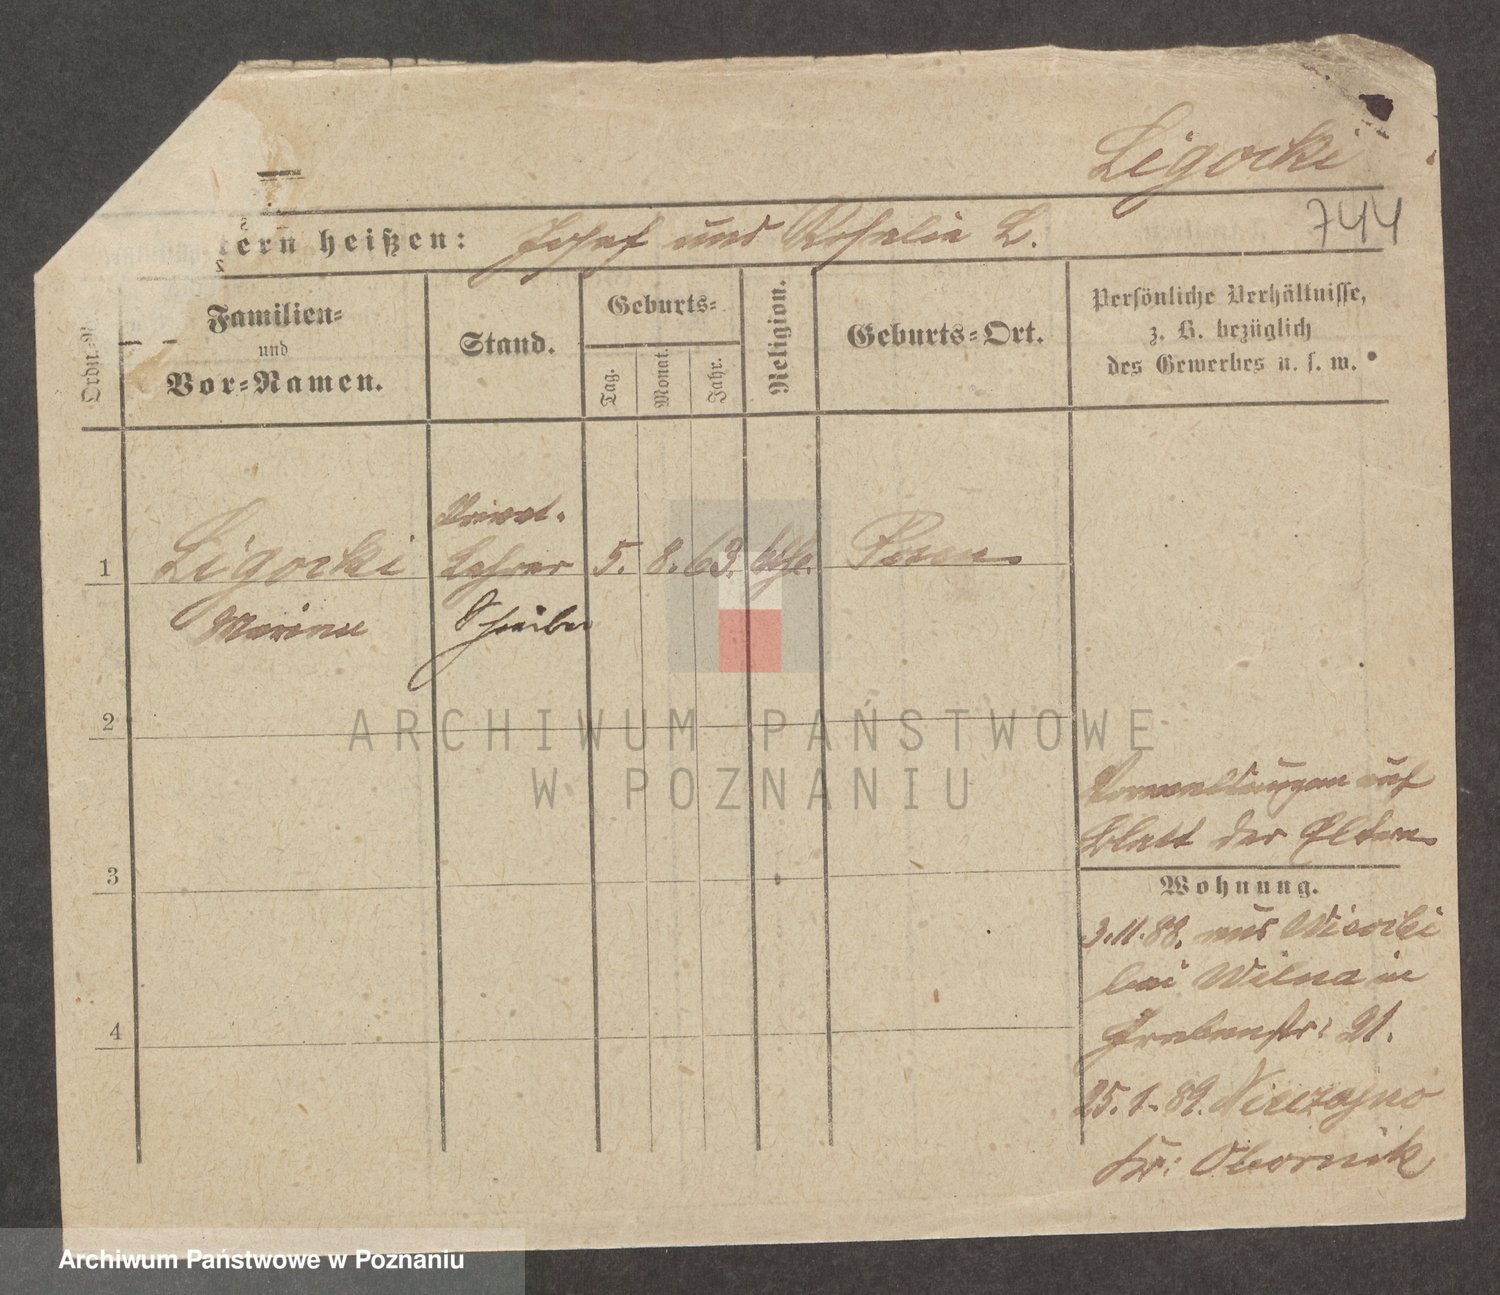 Ligocki
744
tern heißen: Josef und Rosalie L.
Ordn.
Familien-
und
Vor-Namen.
Stand.
Geburts-
Tag.
Monat.
Jahr.
Religion.
Geburts-Ort.
Persönliche Verhältnisse,
z. B. bezüglich
des Gewerbes u. s. w.
1
Ligocki
Marian
Privat-
Lehrer
Schreiber
5. 8. 63. kath. Posen
2
3
4
auf
Blatt der Eltern
Wohnung.
3.11.88. aus
bei Wilna in
Grabenstr: 21.
25.1.89.
Kr: Obornik
ARCHIWUM PAŃSTWOWE
W POZNANIU
Archiwum Państwowe w Poznaniu